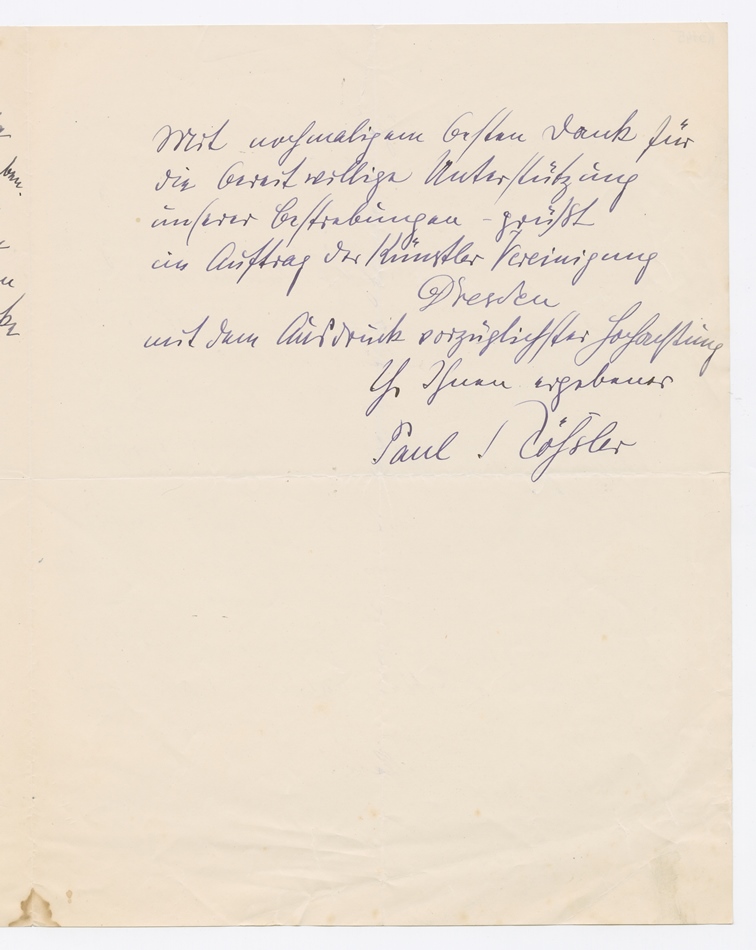 Mit nochmaligem besten Dank für
die bereitwillige Unterstützung
unserer Bestrebungen - grüßt
im Auftrag der Künstler Vereinigung
Dresden
mit dem Ausdruck vorzüglichster Hochachtung
Ihnen ergebener
Paul Rößler